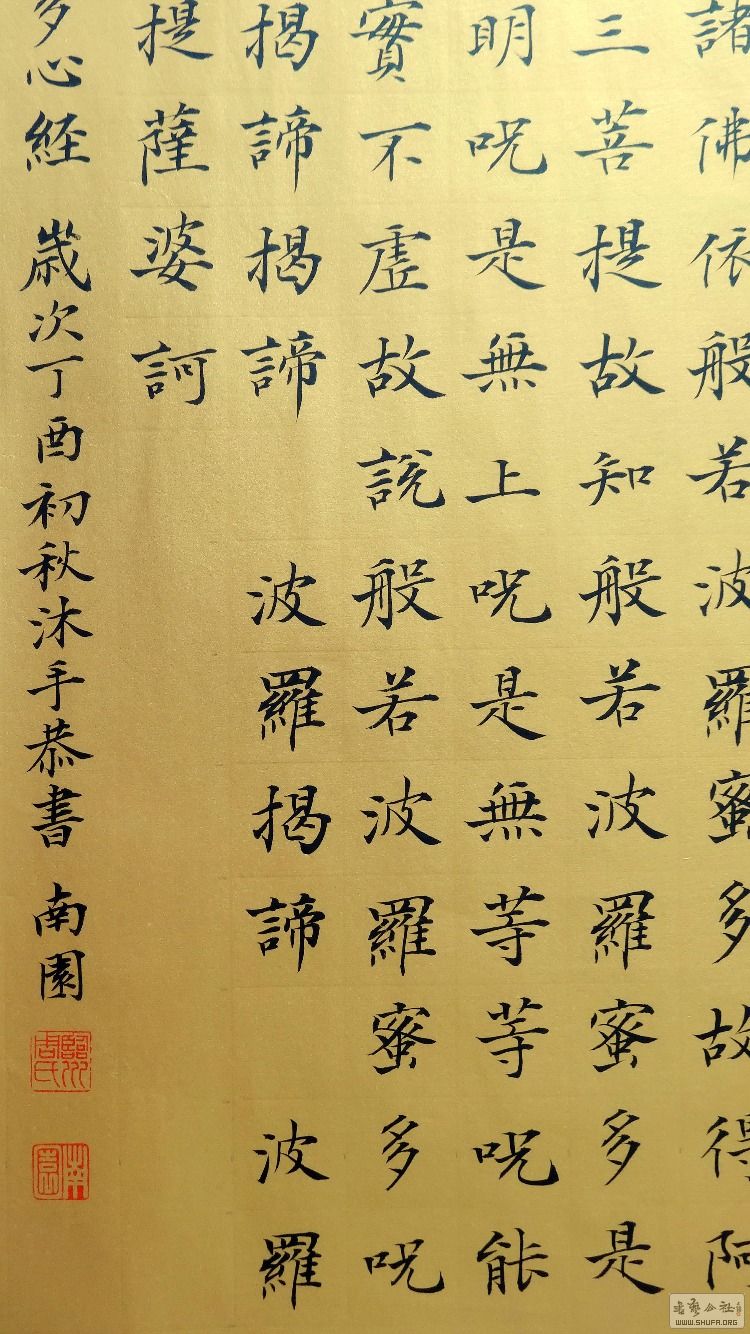 諸佛依般若波羅蜜多故得阿
三菩提故知般若波羅蜜多是
明呪是無上呪是無等等呪能
實不虛故說般若波羅蜜多呪
揭諦揭諦 波羅揭諦 波羅
提薩婆訶
多心経 歲次丁酉初秋沐手恭書 南園
南園
書藝公社
WWW.SHUFA.ORG